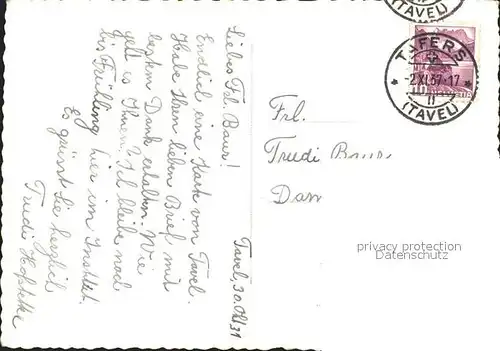 (TAVEL)
TAFERS
-2.XI.37-17
(TAVEL)
HELVETIA
Tavel, 30. Okt 37
Liebes Frl. Baur!
Endlich eine Karte von Tavel.
Habe Ihren lieben Brief mit
bestem Dank erhalten. Wie
geht es Ihnen? Ich bleibe noch
bis Frühling hier im Institut.
Es grüsst Sie herzlich
Trudi Hofstetter
Frl.
Trudi Baur
Dan
privacy protection
Datenschutz